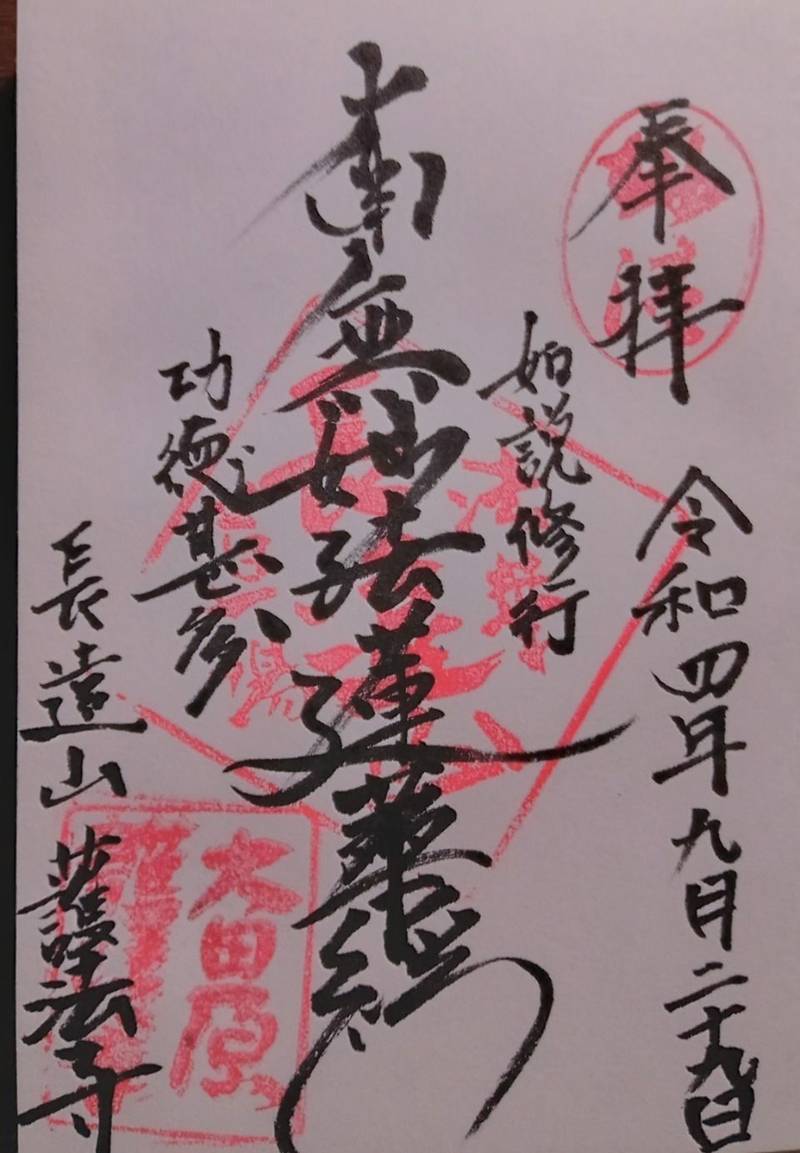 奉拝
令和四年九月二十九日
如説修行
南無妙法蓮華経
功徳甚多
長遠山 護法寺
大田原